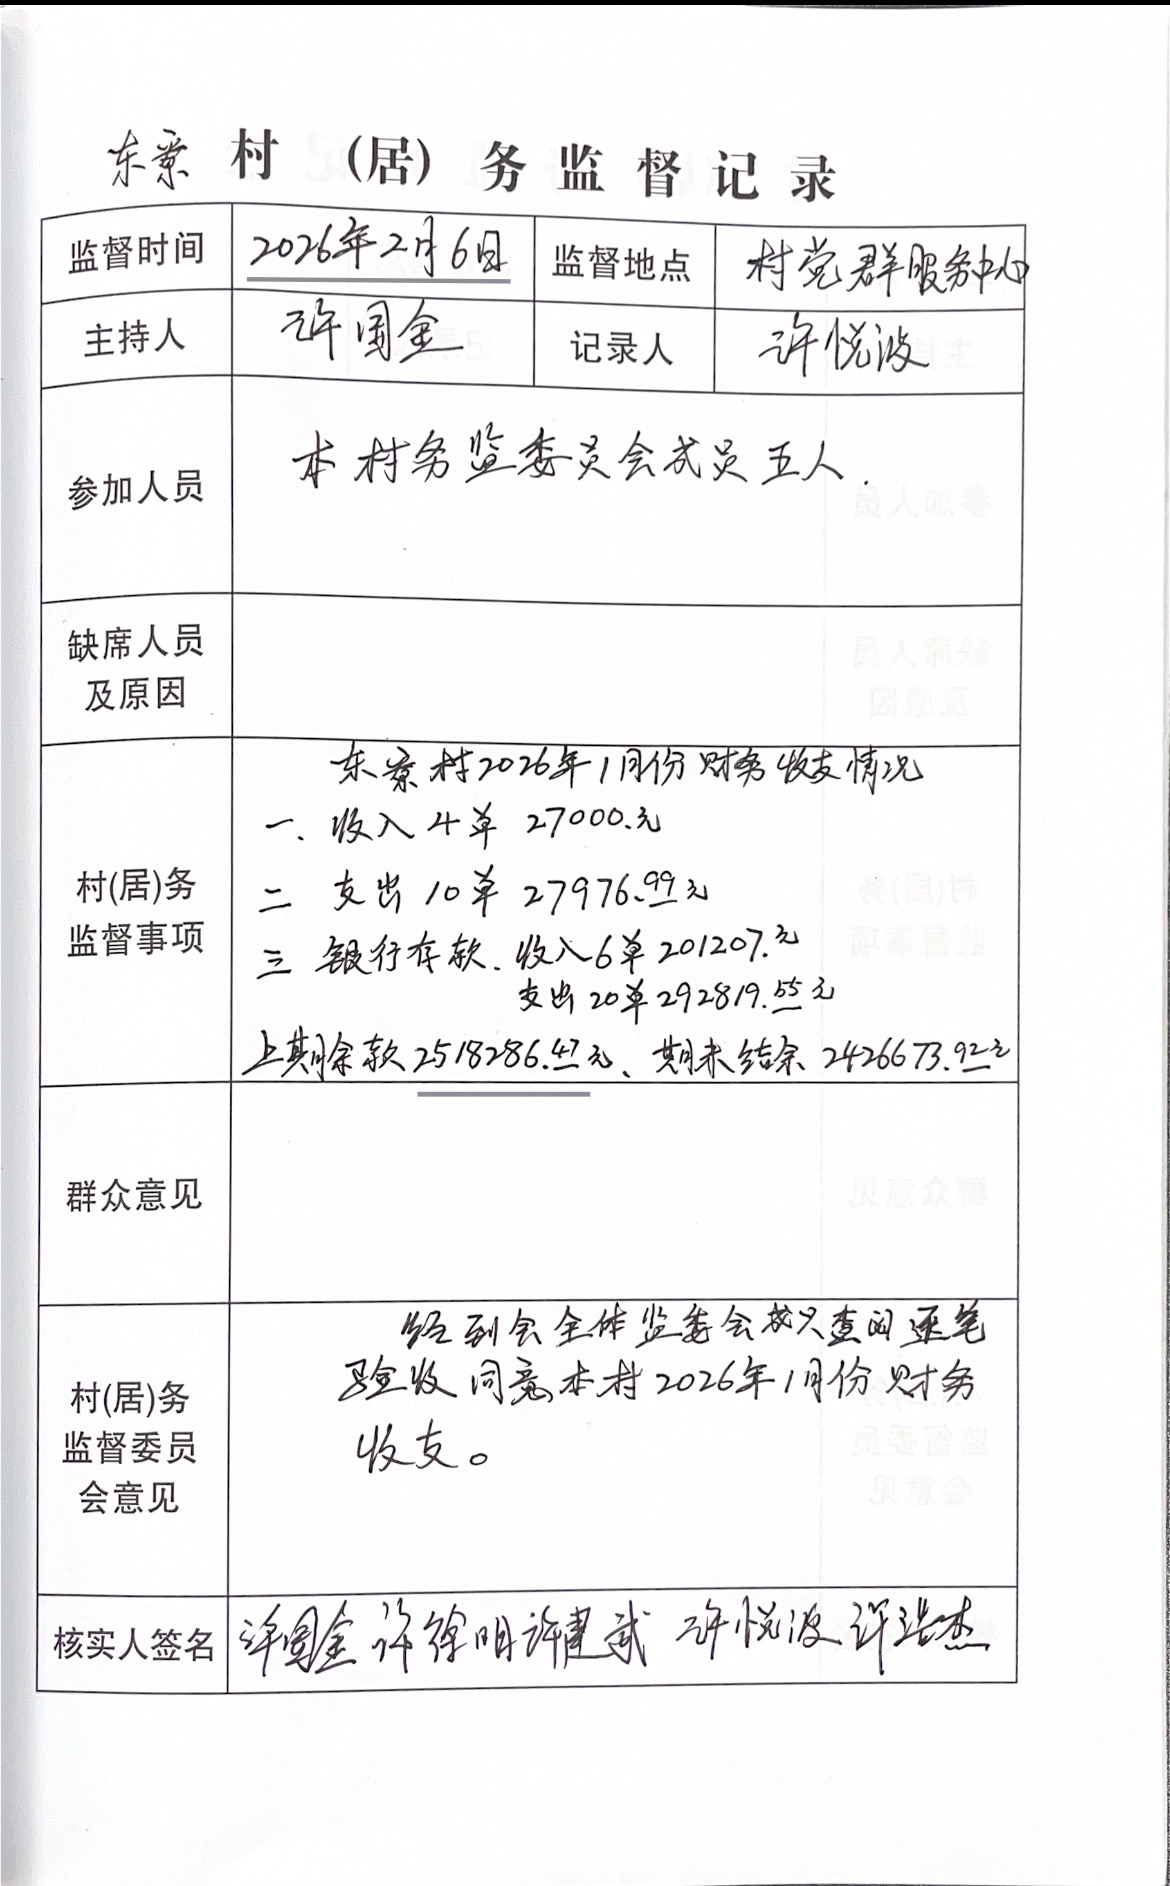 东寮 村 (居) 务监督记录
监督时间 2026年2月6日 监督地点 村党群服务中心
主持人 许国金 记录人 许悦波
参加人员 本村务监委员会成员五人.
缺席人员
及原因
东寮村2026年1月份财务收支情况
一、收入4单 27000.元
二 支出10单 27976.99元
村(居)务
监督事项
三 银行存款、收入6单201207.元
支出20单292819.55元
上期余款2518286.47元、期末结余2426673.92元
群众意见
经到会全体监委会成员查阅逐笔
验收同意本村2026年1月份财务
收支。
村(居)务
监督委员
会意见
核实人签名 许国金 许徐明 许建武 许悦波 许浩杰